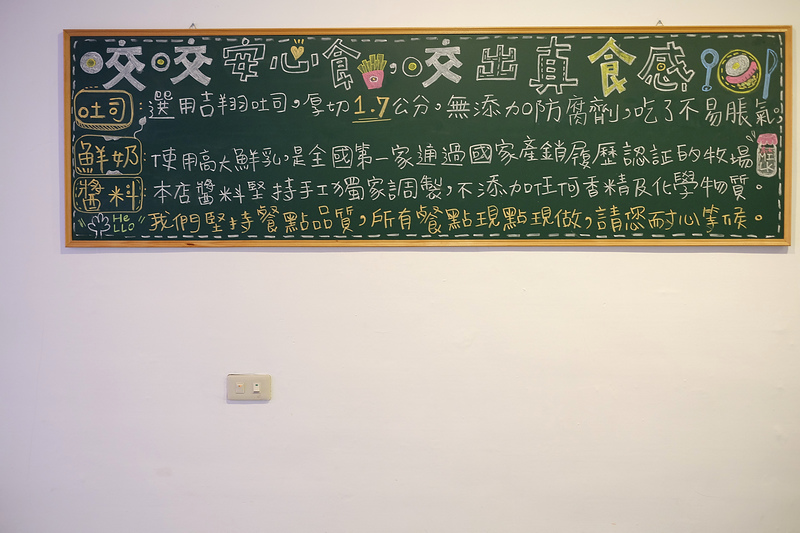 咬咬安心食,咬出真食感!
吐司:選用吉翔吐司,厚切1.7公分,無添加防腐劑,吃了不易脹氣。
鮮奶:使用高大鮮乳,是全國第一家通過國家產銷履歷認証的牧場
醬料:本店醬料堅持手工獨家調製,不添加任何香精及化學物質。
HeLLO 我們堅持餐點品質,所有餐點現點現做,請您耐心等候。
MILK